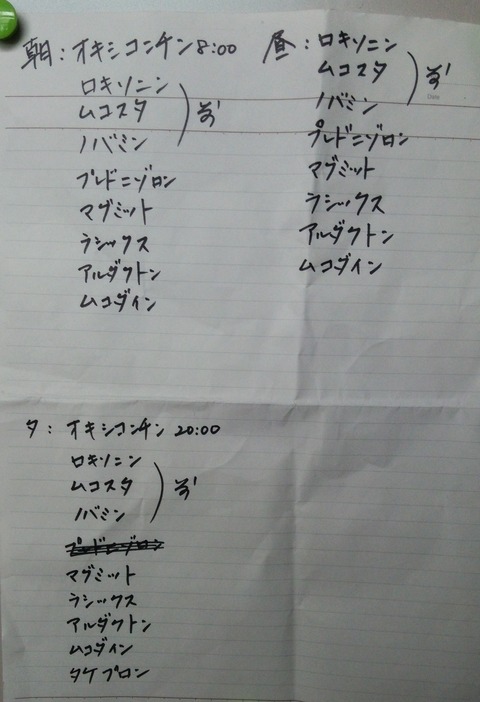 朝：オキシコンチン 8:00
ロキソニン
ムコスタ
ノバミン
プレドニゾロン
マグミット
ラシックス
アルダクトン
ムコダイン
昼：ロキソニン
ムコスタ
ノバミン
プレドニゾロン
マグミット
ラシックス
アルダクトン
ムコダイン
夕：オキシコンチン 20:00
ロキソニン
ムコスタ
ノバミン
プレドニゾロン
マグミット
ラシックス
アルダクトン
ムコダイン
タケプロン